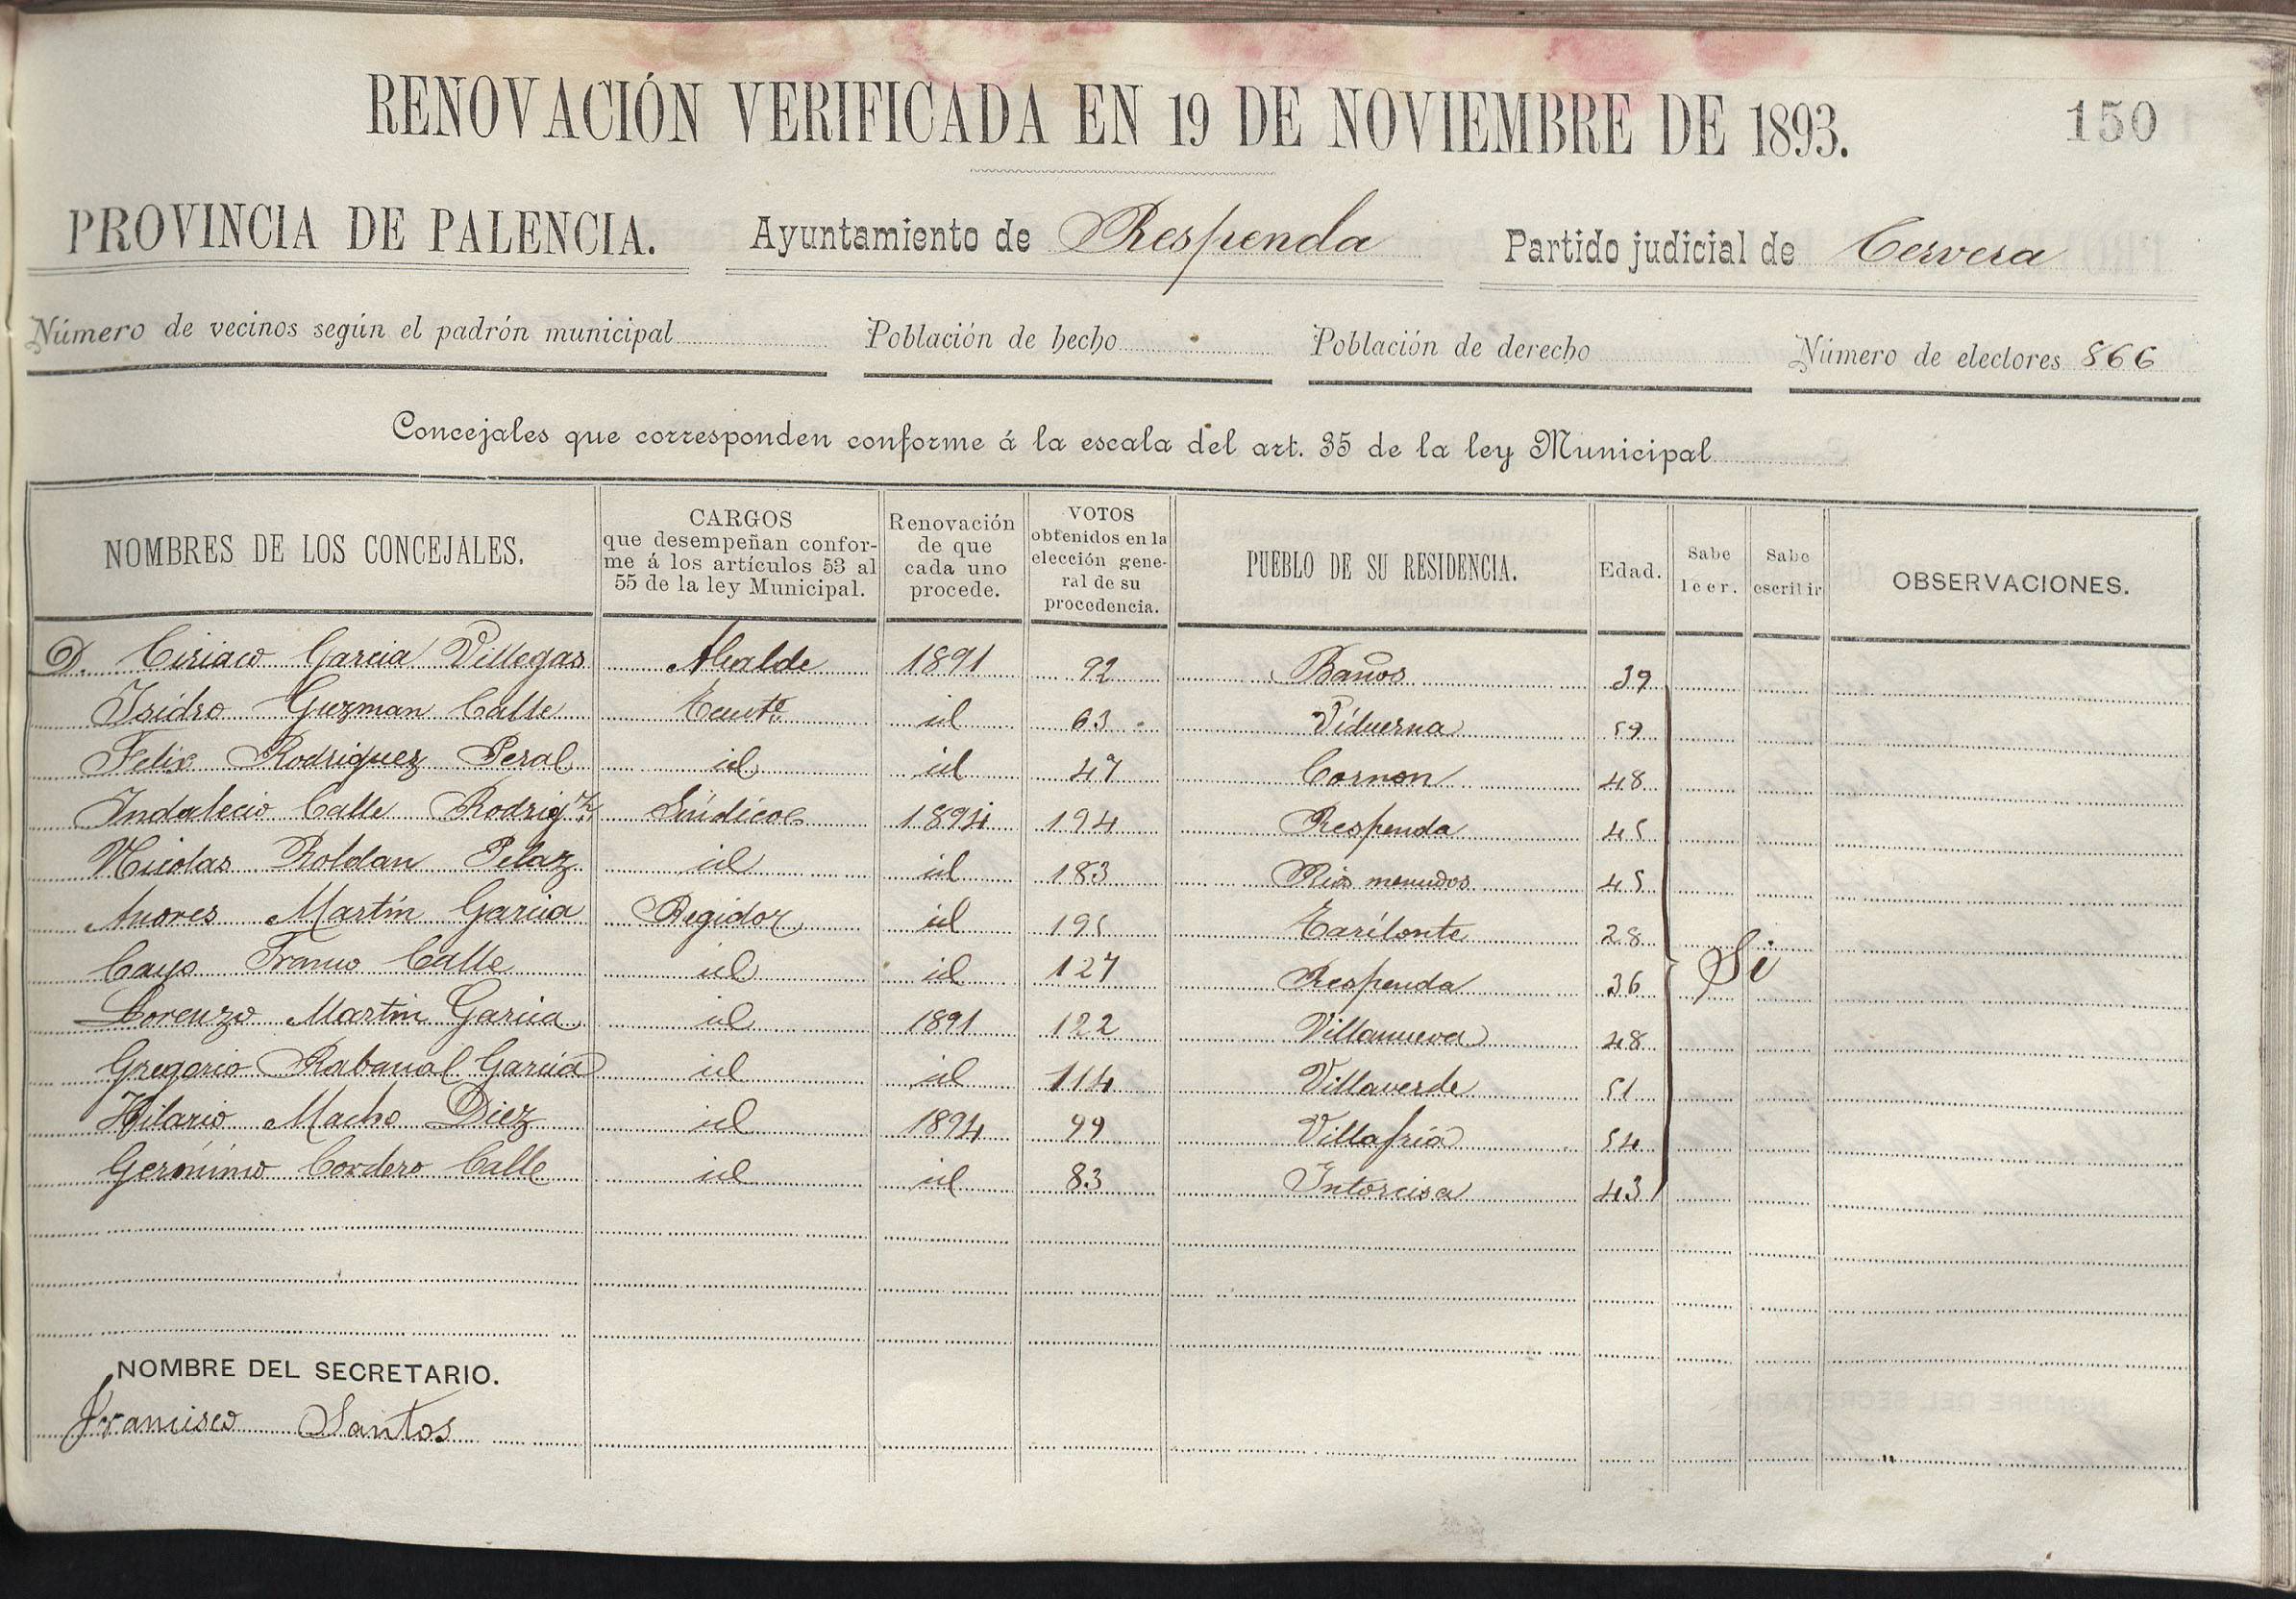 RENOVACIÓN VERIFICADA EN 19 DE NOVIEMBRE DE 1893.
150
PROVINCIA DE PALENCIA. Ayuntamiento de Respenda Partido judicial de Cervera
Número de vecinos según el padrón municipal Población de hecho Población de derecho Número de electores 866
Concejales que corresponden conforme á la escala del art. 35 de la ley Municipal
NOMBRES DE LOS CONCEJALES.
CARGOS
que desempeñan confor-
me á los artículos 53 al
55 de la ley Municipal.
Renovación
de que
cada uno
procede.
VOTOS
obtenidos en la
elección gene-
ral de su
procedencia.
PUEBLO DE SU RESIDENCIA.
Edad.
Sabe
leer.
Sabe
escribir
OBSERVACIONES.
D. Ciriaco Garcia Villegas Alcalde 1891 92 Baños 39
Isidro Guzman Calle Tente id 63 Viduerna 59
Felix Rodriguez Peral id id 47 Cornon 48
Indalecio Calle Rodrigz Síndicos 1894 194 Respenda 45
Nicolas Roldan Pelaz id id 183 Rios menudos 45
Andres Martín Garcia Regidor id 195 Tarilonte 28
Cayo Franco Calle id id 127 Respenda 36
Si
Lorenzo Martin Garcia id 1891 122 Villanueva 48
Gregorio Rabanal Garcia id id 114 Villaverde 51
Hilario Macho Diez id 1894 99 Villafria 54
Gerónimo Cordero Calle id id 83 Intorcisa 43
NOMBRE DEL SECRETARIO.
Francisco Santos